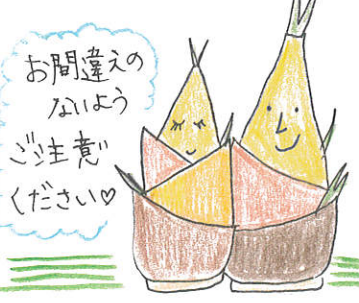 お間違えの
ないよう
ご注意
ください♡